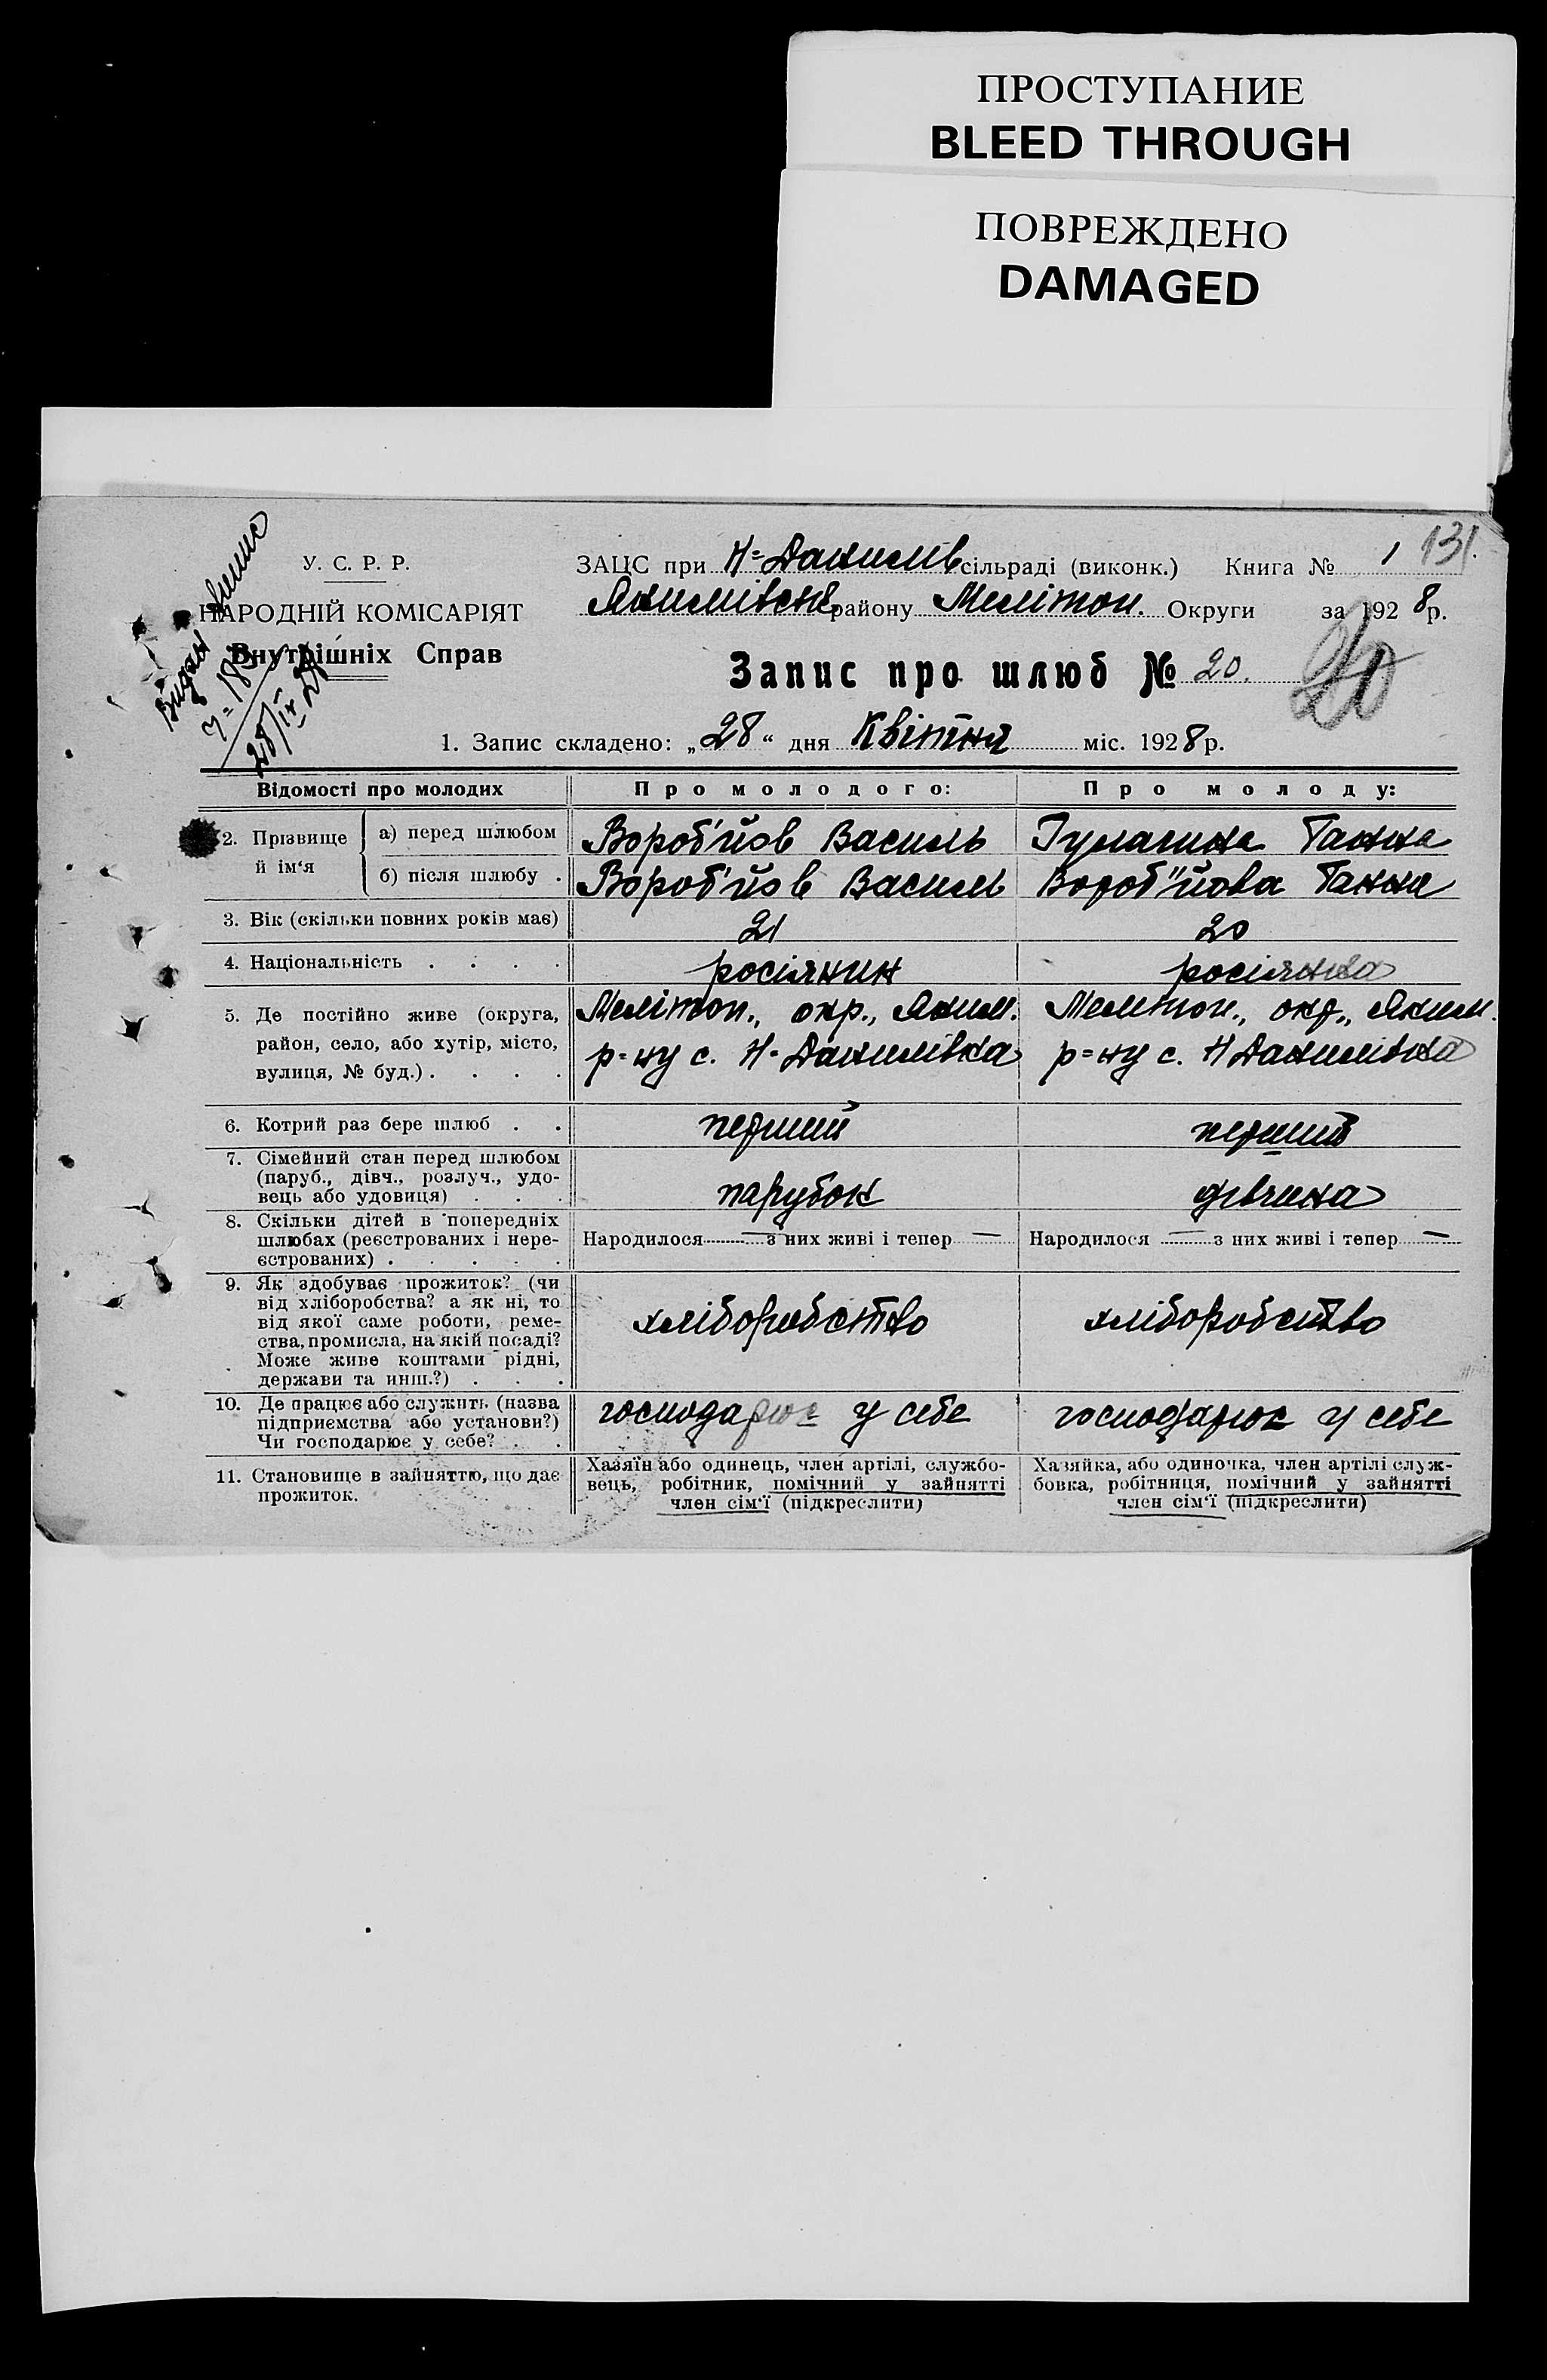 ПРОСТУПАНИЕ
BLEED THROUGH
ПОВРЕЖДЕНО
DAMAGED
У. С. Р. Р.
НАРОДНІЙ КОМІСАРІЯТ
Внутрішніх Справ
Видан
28/IV 28
ЗАЦС при Н=Данилів сільраді (виконк.) Книга № 1 131.
Якимівськ. району Мелітоп. Округи за 1928 р.
Запис про шлюб № 20. 20
1. Запис складено: „28“ дня Квітня міс. 1928 р.
Відомості про молодих Про молодого: Про молоду:
2. Прізвище й ім‘я
а) перед шлюбом Вороб'йов Василь Гулагина Ганна
б) після шлюбу . Вороб'йов Василь Вороб"йова Ганна
3. Вік (скільки повних років має) 21 20
4. Національність . . . . росіянин росіянка
5. Де постійно живе (округа, Мелітоп., окр., Яким. Мелітоп., окр., Яким.
район, село, або хутір, місто, р=ну с. Н-Данилівка р=ну с. Н Данилівка
вулиця, № буд.) . . . .
6. Котрий раз бере шлюб . . перший перший
7. Сімейний стан перед шлюбом
(паруб., дівч., розлуч., удо-
вець або удовиця) . . . парубок дівчина
8. Скільки дітей в попередніх
шлюбах (реєстрованих і нере- Народилося — з них живі і тепер — Народилося — з них живі і тепер —
єстрованих) . . . . .
9. Як здобуває прожиток? (чи
від хліборобства? а як ні, то
від якої саме роботи, реме- хліборобство хліборобство
ства, промисла, на якій посаді?
Може живе коштами рідні,
держави та инш.?) . . .
10. Де працює або служить (назва
підприємства або установи?) господарює у себе господарює у себе
Чи господарює у себе? . .
11. Становище в зайняттю, що дає
прожиток.
Хазяїн або одинець, член артілі, службо-
вець, робітник, помічний у зайнятті
член сім‘ї (підкреслити)
Хазяйка, або одиночка, член артілі служ-
бовка, робітниця, помічний у зайнятті
член сім‘ї (підкреслити)